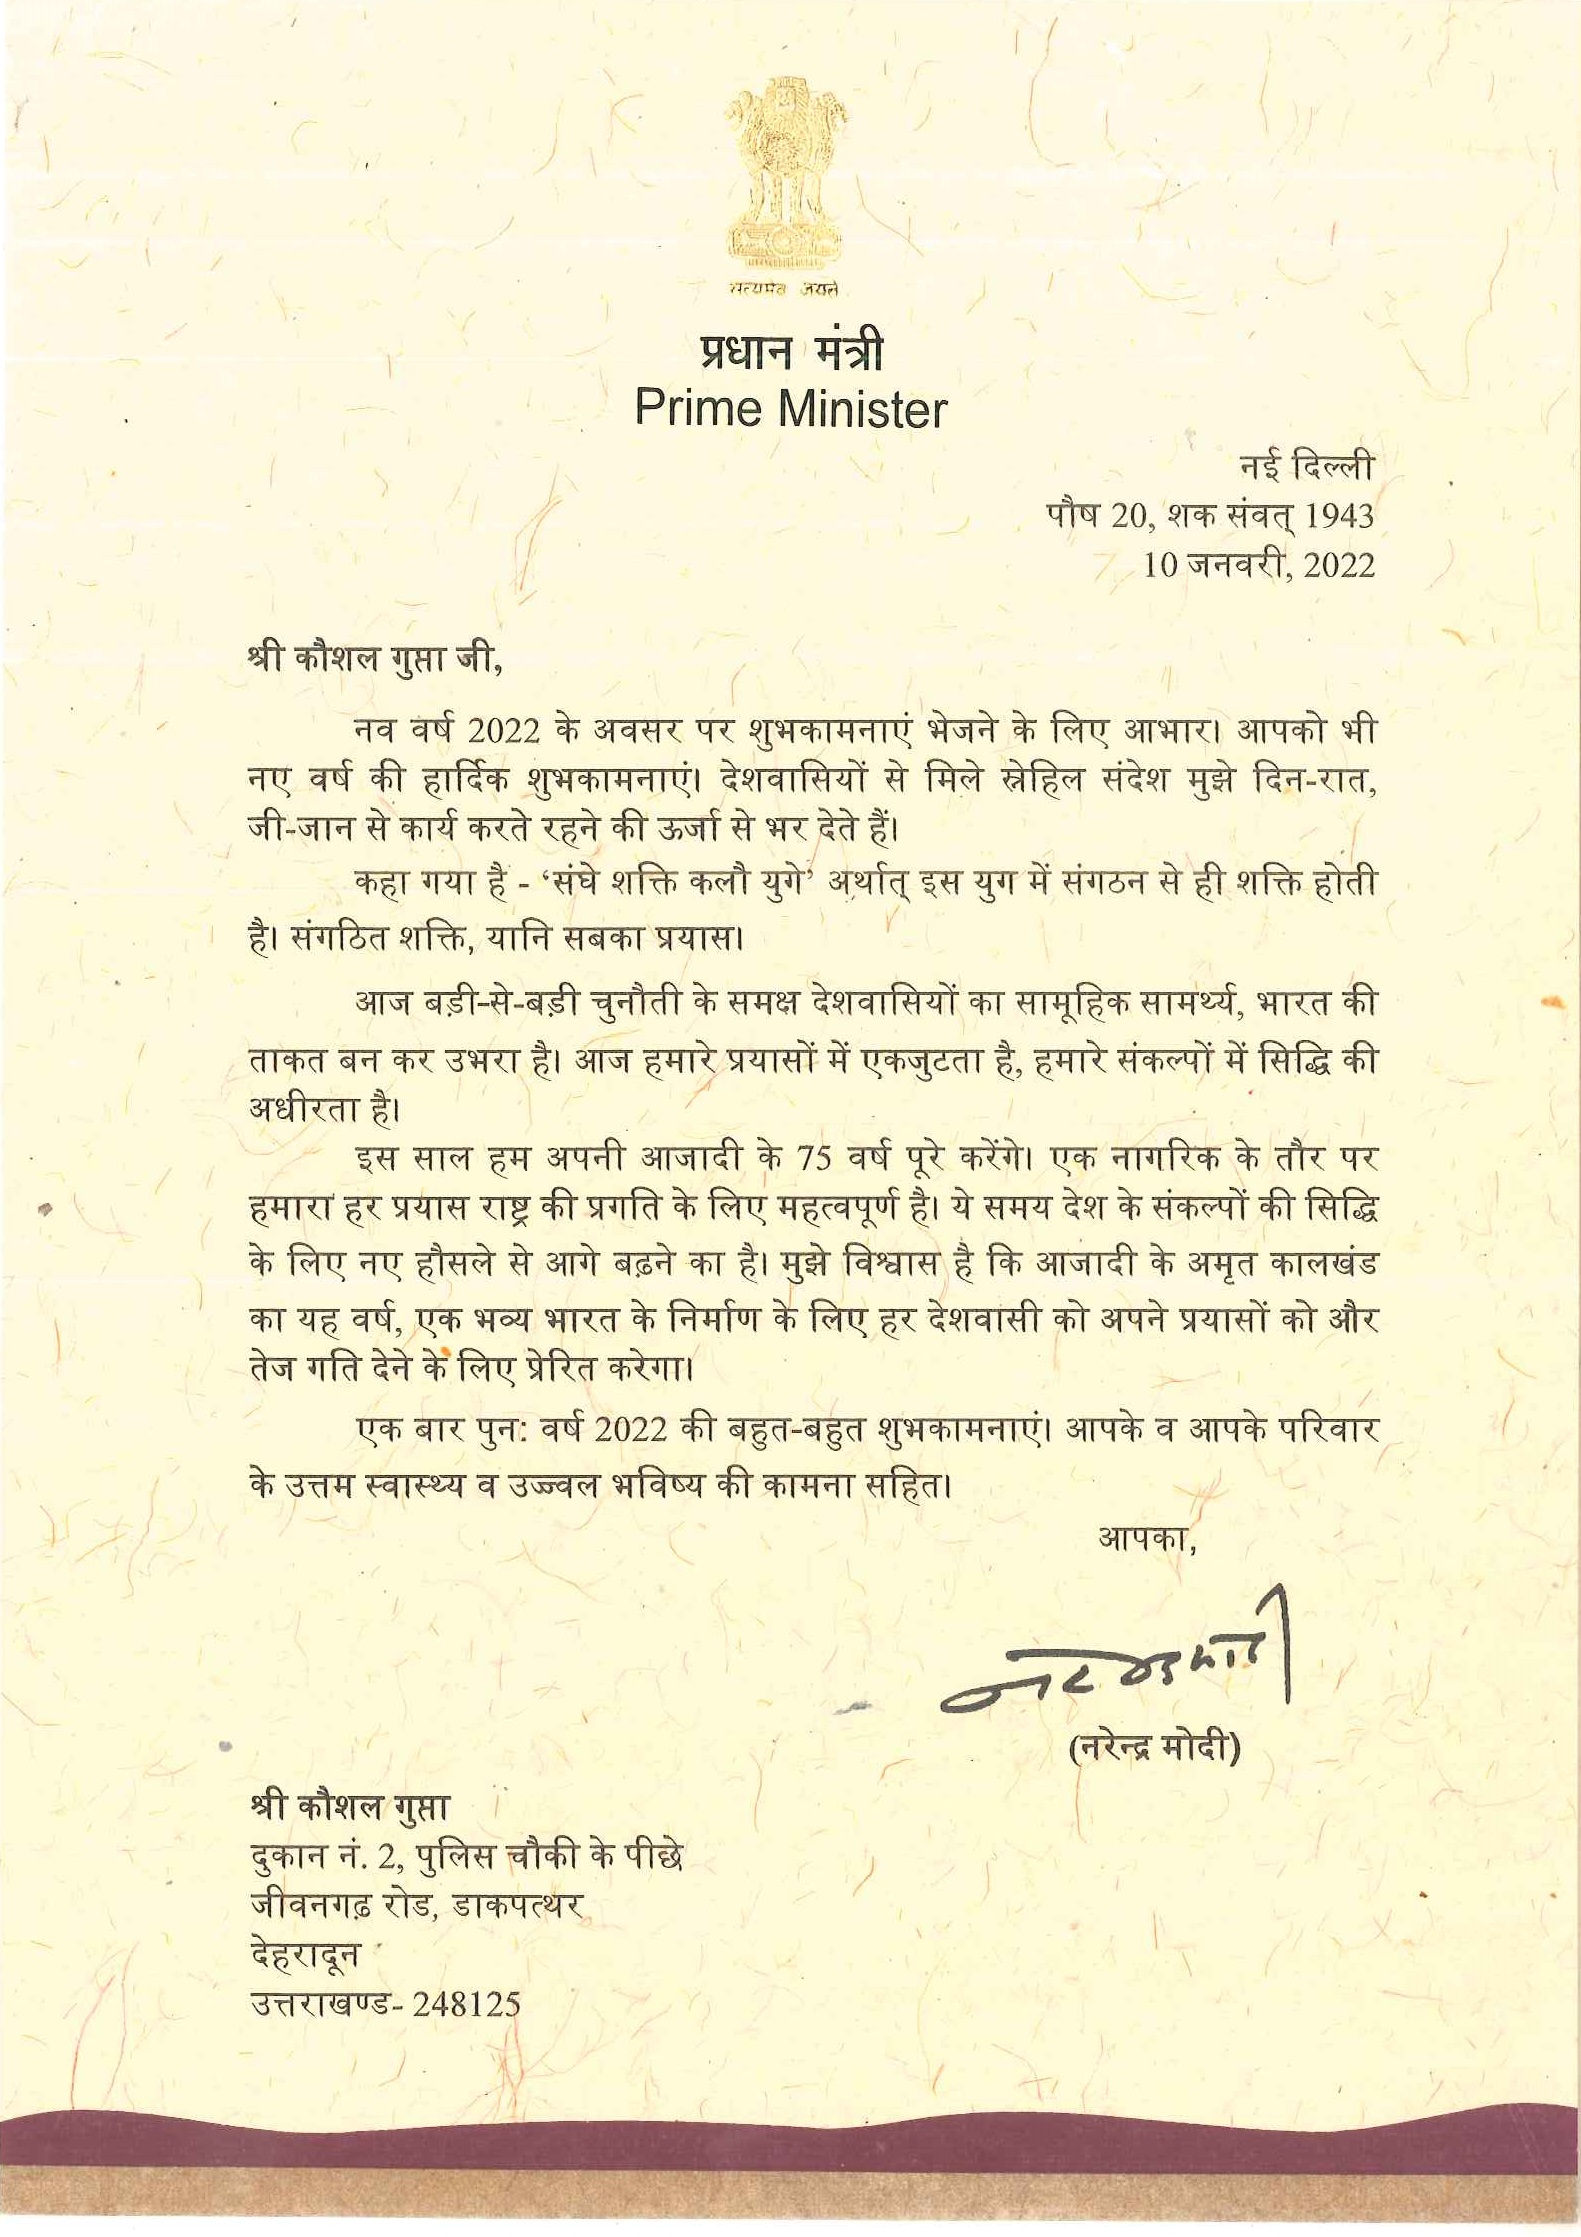 सत्यमेव जयते
प्रधान मंत्री
Prime Minister
नई दिल्ली
पौष 20, शक संवत् 1943
10 जनवरी, 2022
श्री कौशल गुप्ता जी,
नव वर्ष 2022 के अवसर पर शुभकामनाएं भेजने के लिए आभार। आपको भी
नए वर्ष की हार्दिक शुभकामनाएं। देशवासियों से मिले स्नेहिल संदेश मुझे दिन-रात,
जी-जान से कार्य करते रहने की ऊर्जा से भर देते हैं।
कहा गया है - ‘संघे शक्ति कलौ युगे’ अर्थात् इस युग में संगठन से ही शक्ति होती
है। संगठित शक्ति, यानि सबका प्रयास।
आज बड़ी-से-बड़ी चुनौती के समक्ष देशवासियों का सामूहिक सामर्थ्य, भारत की
ताकत बन कर उभरा है। आज हमारे प्रयासों में एकजुटता है, हमारे संकल्पों में सिद्धि की
अधीरता है।
इस साल हम अपनी आजादी के 75 वर्ष पूरे करेंगे। एक नागरिक के तौर पर
हमारा हर प्रयास राष्ट्र की प्रगति के लिए महत्वपूर्ण है। ये समय देश के संकल्पों की सिद्धि
के लिए नए हौसले से आगे बढ़ने का है। मुझे विश्वास है कि आजादी के अमृत कालखंड
का यह वर्ष, एक भव्य भारत के निर्माण के लिए हर देशवासी को अपने प्रयासों को और
तेज गति देने के लिए प्रेरित करेगा।
एक बार पुन: वर्ष 2022 की बहुत-बहुत शुभकामनाएं। आपके व आपके परिवार
के उत्तम स्वास्थ्य व उज्ज्वल भविष्य की कामना सहित।
आपका,
(नरेन्द्र मोदी)
श्री कौशल गुप्ता
दुकान नं. 2, पुलिस चौकी के पीछे
जीवनगढ़ रोड, डाकपत्थर
देहरादून
उत्तराखण्ड- 248125